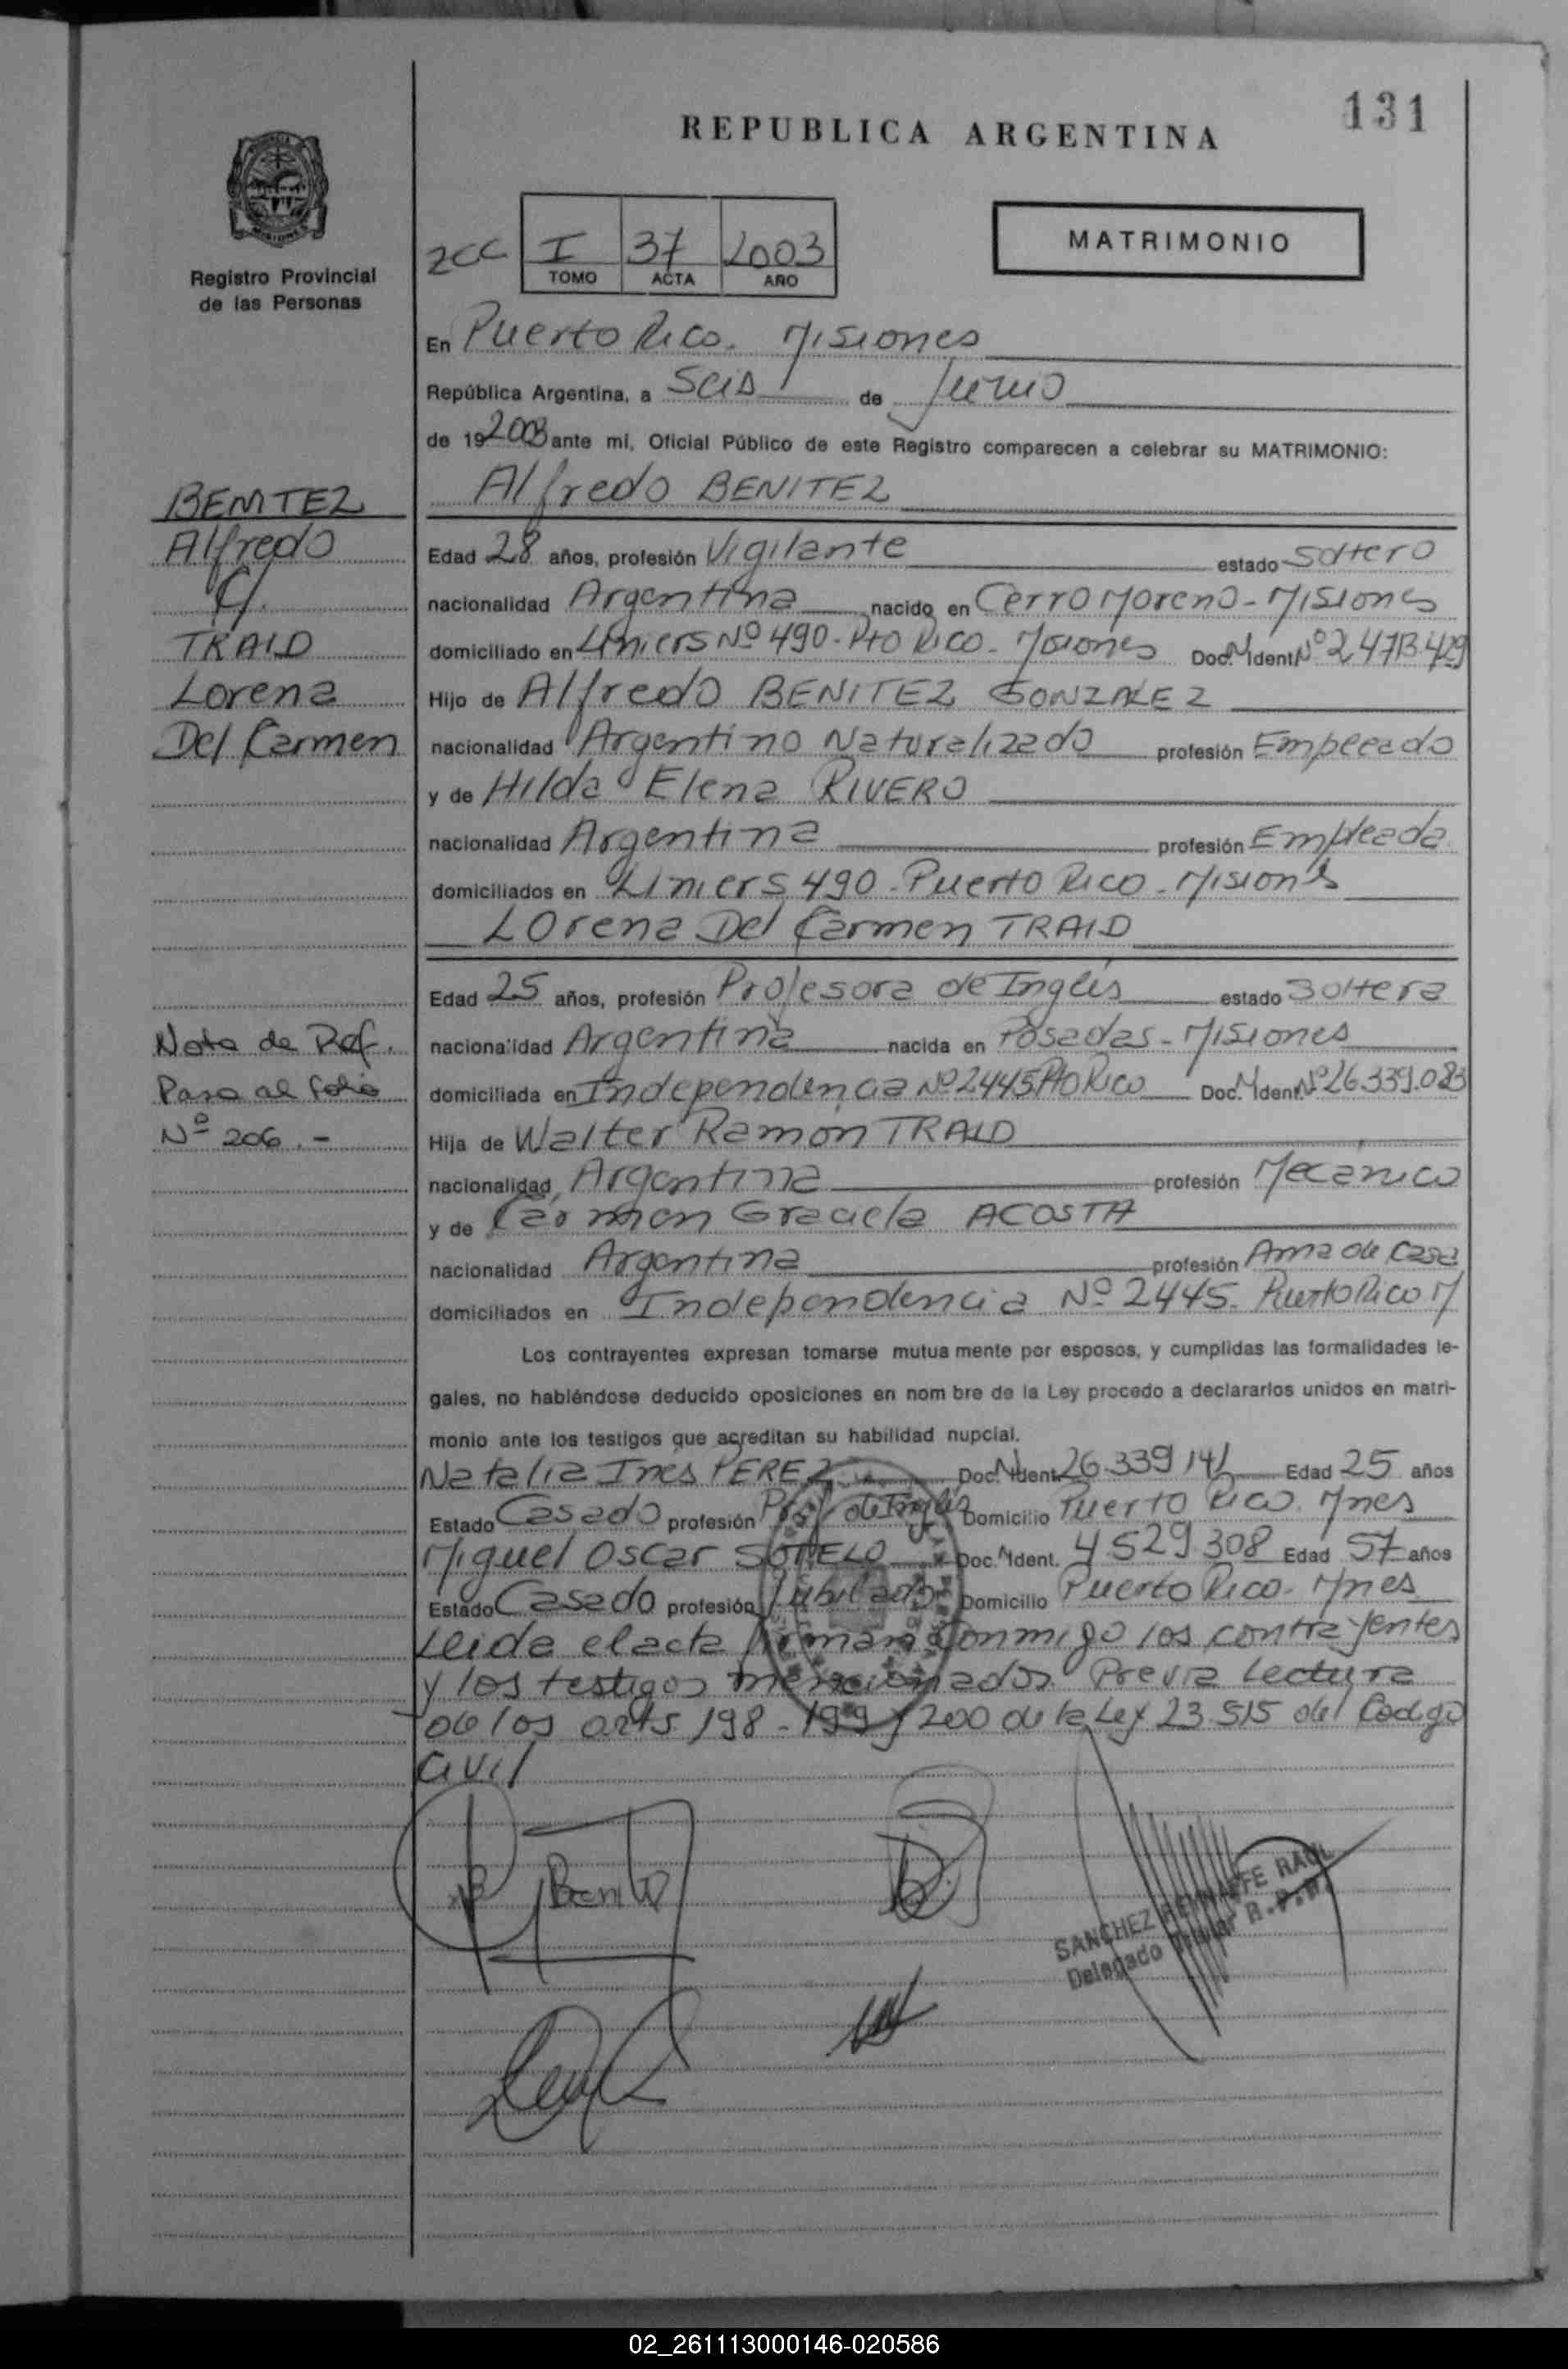 131
REPUBLICA ARGENTINA
Registro Provincial
de las Personas
2CC
I 37 2003
TOMO ACTA AÑO
MATRIMONIO
En Puerto Rico. Misiones
República Argentina, a Seis de Junio
de 192003 ante mi, Oficial Público de este Registro comparecen a celebrar su MATRIMONIO:
Alfredo BENITEZ
BENITEZ
Alfredo
C/.
TRAID
Lorena
Del Carmen
Edad 28 años, profesión Vigilante estado Soltero
nacionalidad Argentina nacido en Cerro Moreno - Misiones
domiciliado en Liniers Nº 490 - Pto Rico - Misiones Doc. N. Ident Nº 24713.429
Hijo de Alfredo BENITEZ GONZALEZ
nacionalidad Argentino Naturalizado profesión Empleado
y de Hilda Elena RIVERO
nacionalidad Argentina profesión Empleada
domiciliados en Liniers 490 - Puerto Rico - Misiones
Lorena Del Carmen TRAID
Edad 25 años, profesión Profesora de Inglés estado Soltera
nacionalidad Argentina nacida en Posadas - Misiones
domiciliada en Independencia Nº 2445 Pto Rico Doc. N. Ident Nº 26.339.083
Hija de Walter Ramon TRAID
nacionalidad Argentina profesión Mecánico
y de Carmen Graciela ACOSTA
nacionalidad Argentina profesión Ama de Casa
domiciliados en Independencia Nº 2445. Puerto Rico M
Nota de Ref.
Pasa al folio
Nº 206.-
Los contrayentes expresan tomarse mutua mente por esposos, y cumplidas las formalidades le-
gales, no habiéndose deducido oposiciones en nom bre de la Ley procedo a declararlos unidos en matri-
monio ante los testigos que acreditan su habilidad nupcial.
Natalia Ines PEREZ Doc. N. Ident. 26.339 141 Edad 25 años
Estado Casado profesión Prof de Inglés Domicilio Puerto Rico. Mnes
Miguel Oscar SOTELO Doc. N. Ident. 4.529.308 Edad 57 años
Estado Casado profesión Jubilado Domicilio Puerto Rico - Mnes
Leida el acta firman conmigo los contrayentes
y los testigos mencionados Previa lectura
de los arts 198 - 199 y 200 de la Ley 23.515 del Codigo
Civil
Benitez
SANCHEZ RAUL
Delegado Titular R.P.P.
02_261113000146-020586